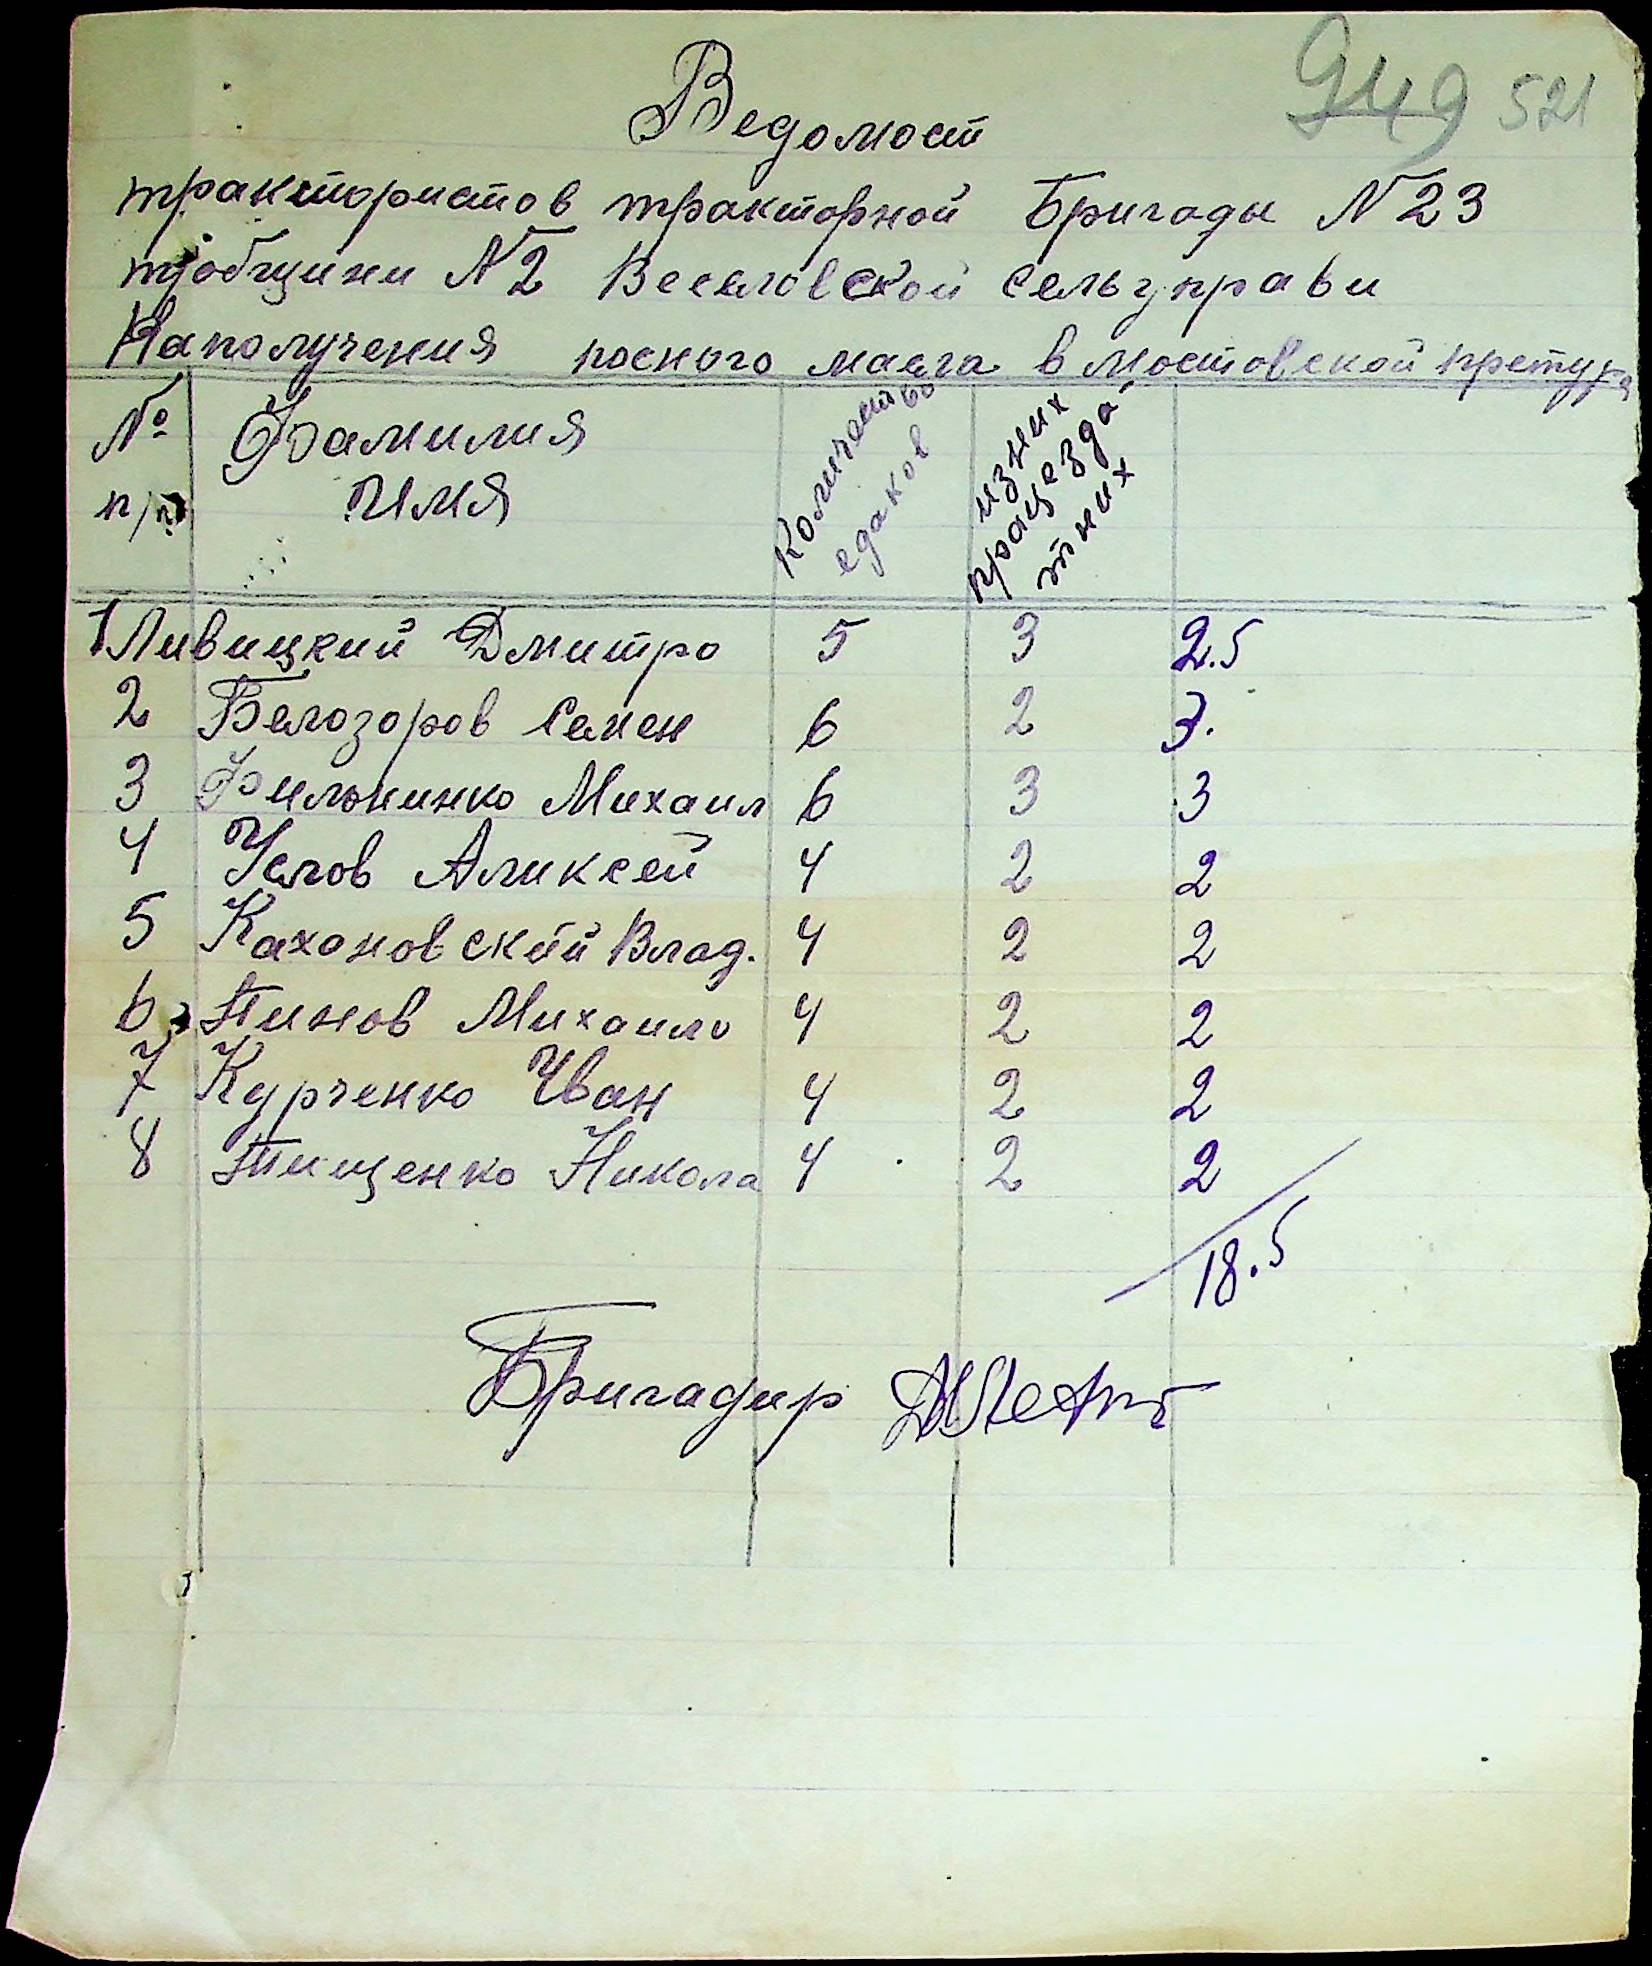 949 521
Ведомост
трактористов тракторной Бригады N 23
тробщини N2 Веселовской сельуправи
Наполучения посного масла в мостовской претуре
№ п/п Фамилия Имя Количество едаков из них працездатних
1 Ливицкий Дмитро 5 3 2.5
2 Белозоров Семен 6 2 3.
3 Фильнинко Михаил 6 3 3
4 Услов Аликсей 4 2 2
5 Кахановский Влад. 4 2 2
6 Пинов Михаило 4 2 2
7 Курченко Иван 4 2 2
8 Тищенко Никола 4 2 2
18.5
Бригадир